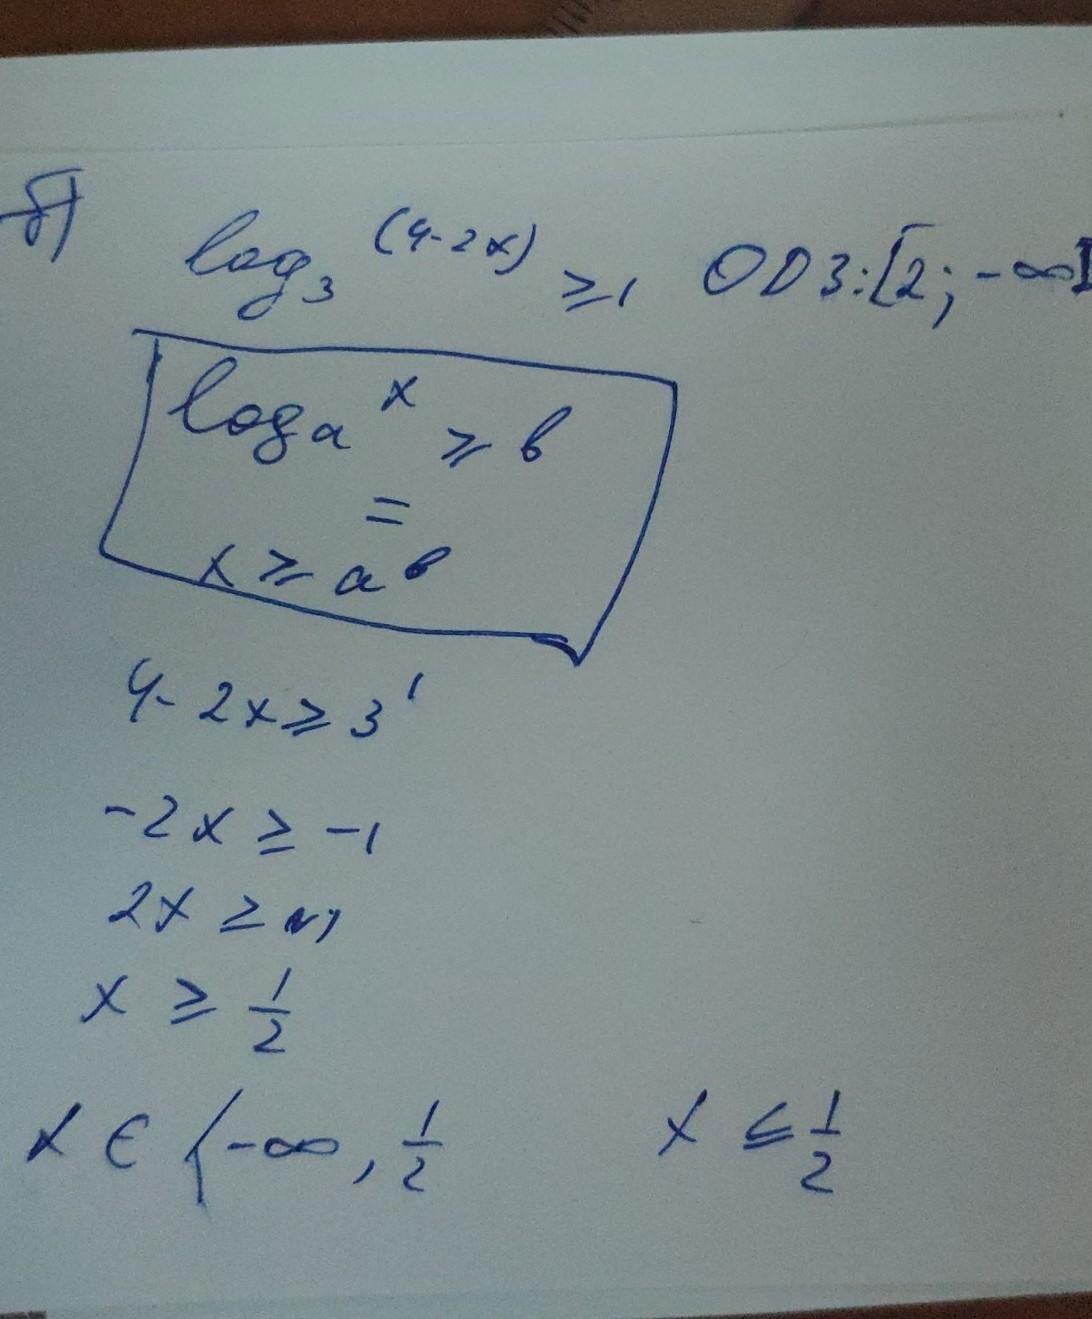 б) log₃^(4-2x) ≥ 1 ОДЗ: [2; -∞]
logₐ^x ≥ b
=
x ≥ a^b
4 - 2x ≥ 3^1
-2x ≥ -1
2x ≥
x ≥ 1/2
x ∈ (-∞, 1/2 x ≤ 1/2